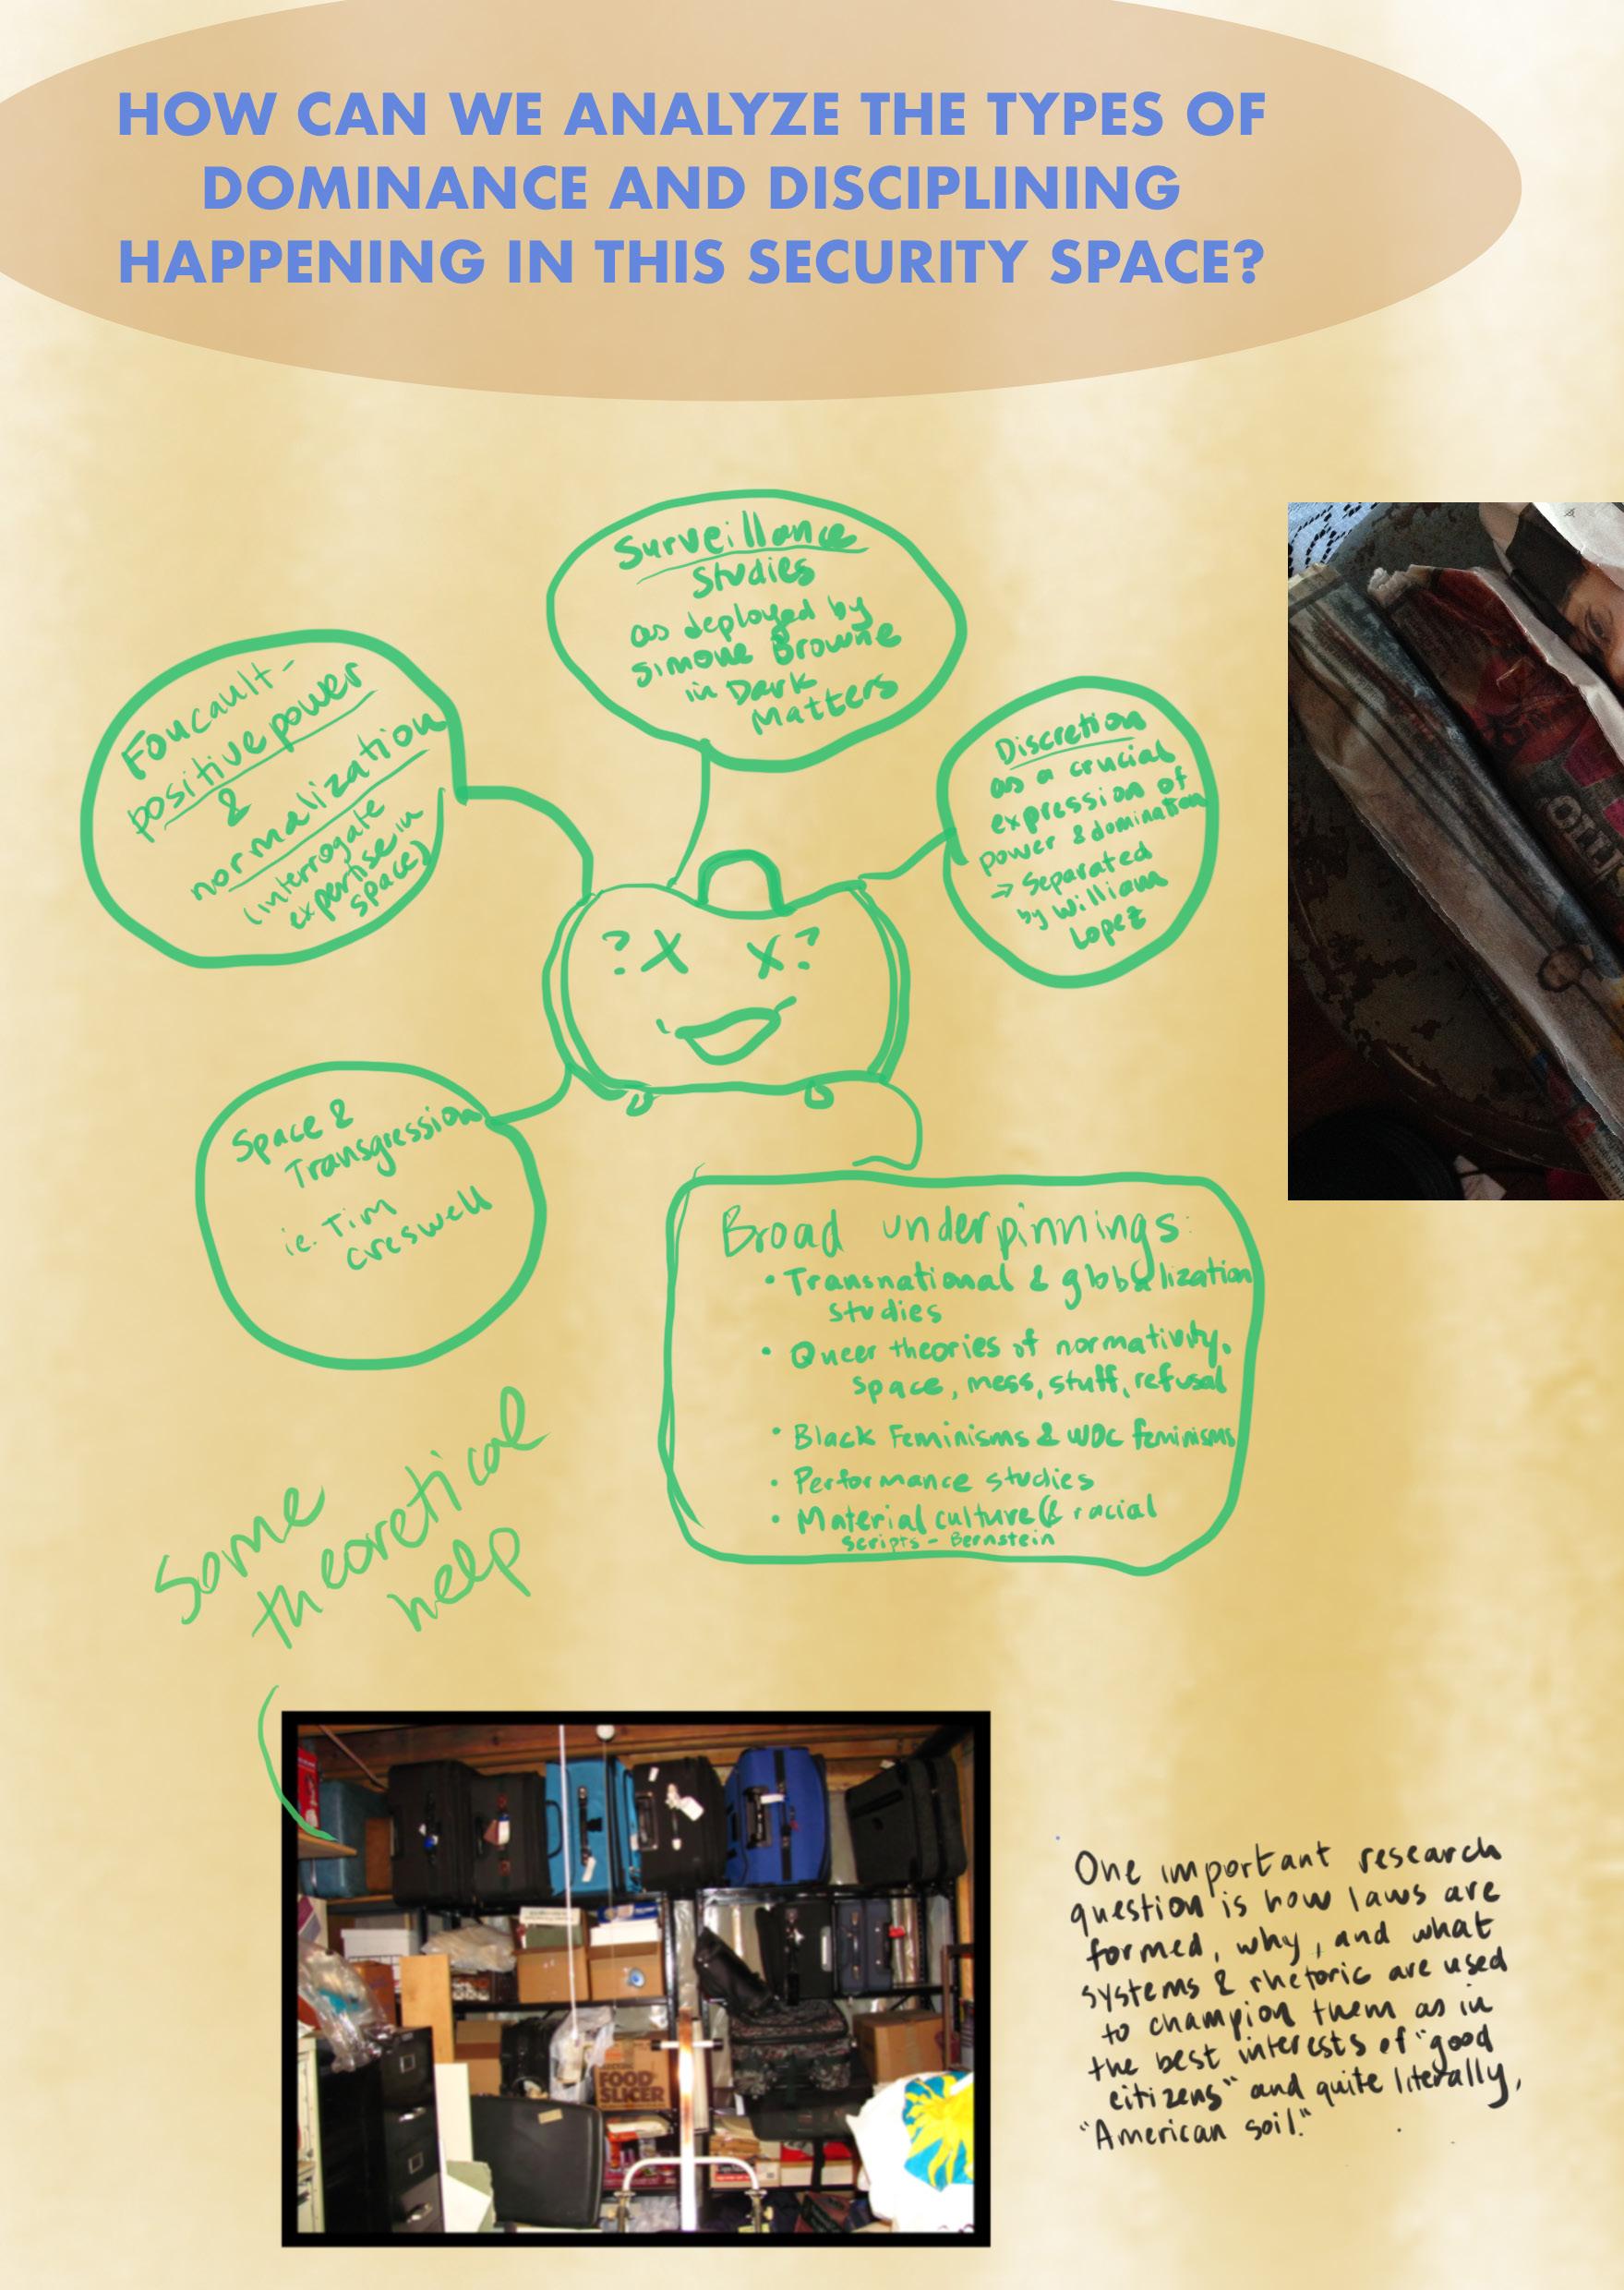 HOW CAN WE ANALYZE THE TYPES OF
DOMINANCE AND DISCIPLINING
HAPPENING IN THIS SECURITY SPACE?
Surveillance
Studies
as deployed by
Simone Browne
in Dark
Matters
Foucault-
positive power
&
normalization
(interrogate
expertise in
space)
Discretion
as a crucial
expression of
power & domination
→ Separated
by William
Lopez
?X X?
Space &
Transgression
ie. Tim
Creswell
Broad underpinnings:
• Transnational & globalization
studies
• Queer theories of normativity,
space, mess, stuff, refusal
• Black Feminisms & WOC feminisms
• Performance studies
• Material culture (& racial
scripts - Bernstein
Some
theoretical
help
FOOD
SLICER
One important research
question is how laws are
formed, why, and what
systems & rhetoric are used
to champion them as in
the best interests of "good
citizens" and quite literally,
"American soil."